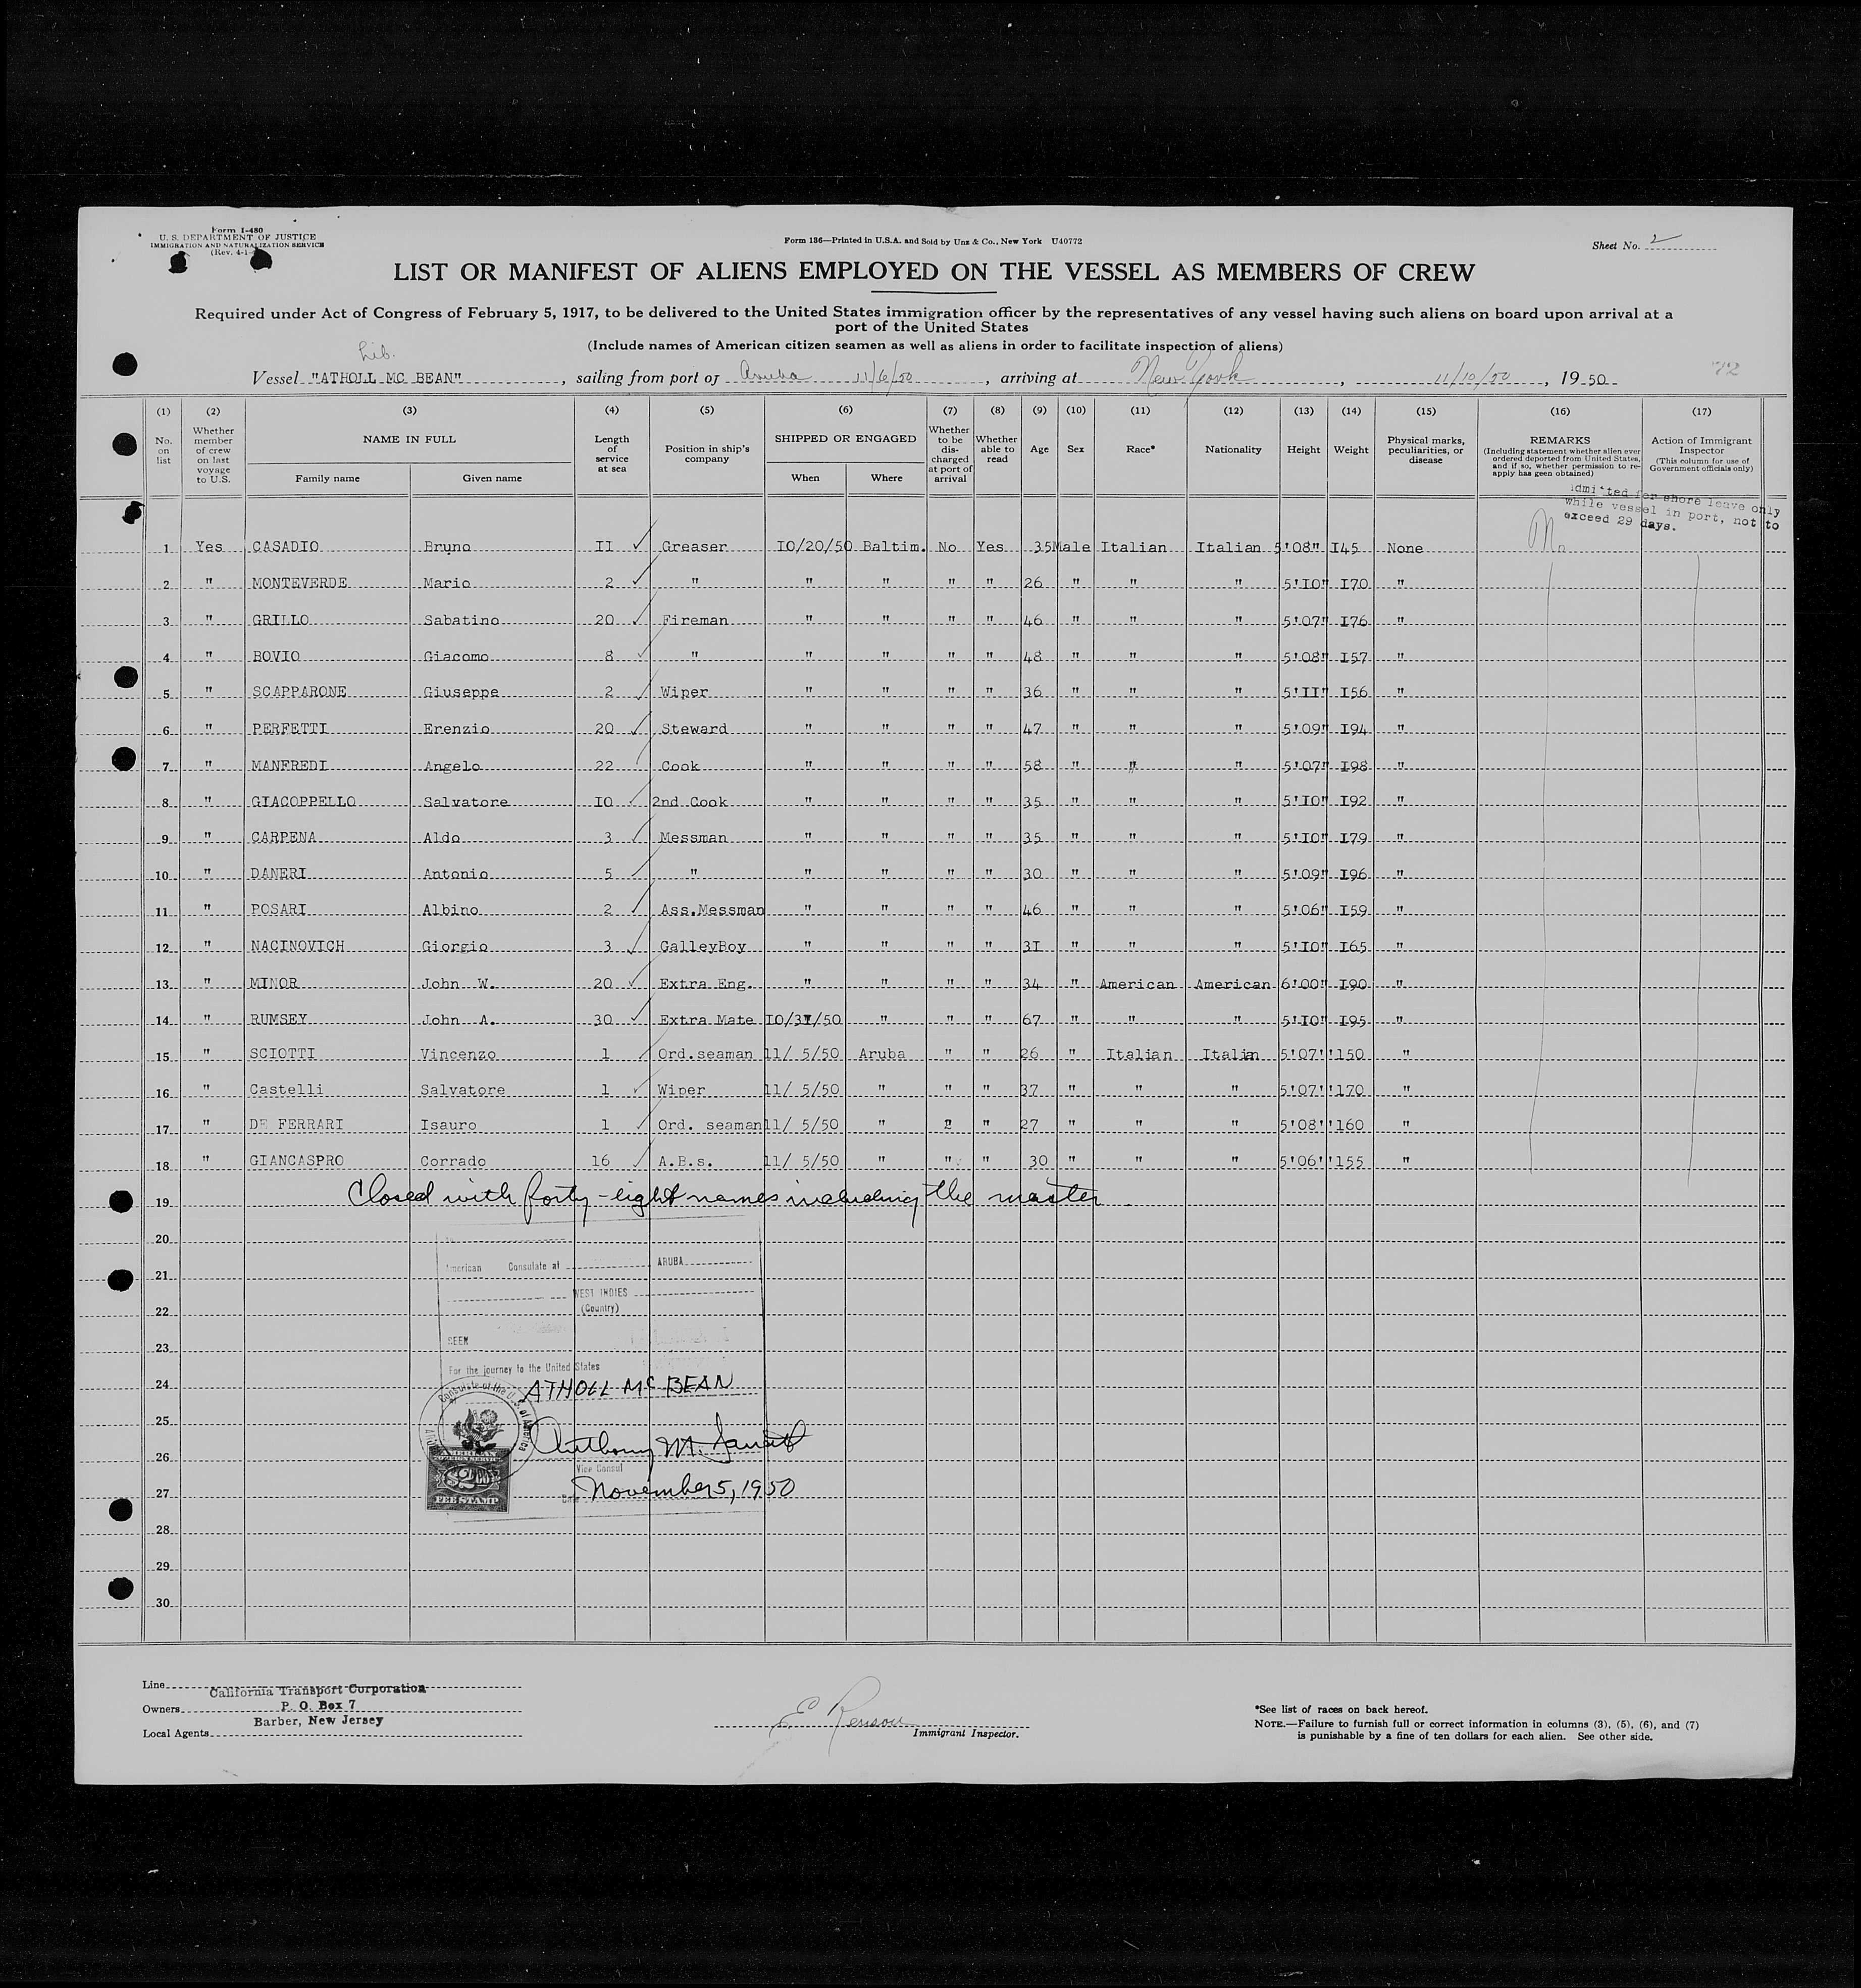 Form I-480
U. S. DEPARTMENT OF JUSTICE
IMMIGRATION AND NATURALIZATION SERVICE
(Rev. 4-1-
Form 136—Printed in U.S.A. and Sold by Unz & Co., New York U40772
Sheet No. 2
LIST OR MANIFEST OF ALIENS EMPLOYED ON THE VESSEL AS MEMBERS OF CREW
Required under Act of Congress of February 5, 1917, to be delivered to the United States immigration officer by the representatives of any vessel having such aliens on board upon arrival at a
port of the United States
(Include names of American citizen seamen as well as aliens in order to facilitate inspection of aliens)
Lib.
Vessel "ATHOLL MC BEAN", sailing from port of Aruba 11/6/50, arriving at New York, 11/10/50, 19 50
72
(1) (2) (3) (4) (5) (6) (7) (8) (9) (10) (11) (12) (13) (14) (15) (16) (17)
No. on list
Whether member of crew on last voyage to U.S.
NAME IN FULL
Family name Given name
Length of service at sea
Position in ship's company
SHIPPED OR ENGAGED
When Where
Whether to be discharged at port of arrival
Whether able to read
Age
Sex
Race*
Nationality
Height
Weight
Physical marks, peculiarities, or disease
REMARKS
(Including statement whether alien ever ordered deported from United States, and if so, whether permission to reapply has geen obtained)
Action of Immigrant Inspector
(This column for use of Government officials only)
Admitted for shore leave only
while vessel in port, not to
exceed 29 days.
1 Yes CASADIO Bruno II Greaser IO/20/50 Baltim. No Yes 35 Male Italian Italian 5'08" I45 None
2 " MONTEVERDE Mario 2 " " " " " 26 " " " 5'IO" I70 "
3 " GRILLO Sabatino 20 Fireman " " " " 46 " " " 5'07" I76 "
4 " BOVIO Giacomo 8 " " " " " 48 " " " 5'08" I57 "
5 " SCAPPARONE Giuseppe 2 Wiper " " " " 36 " " " 5'II" I56 "
6 " PERFETTI Erenzio 20 Steward " " " " 47 " " " 5'09" I94 "
7 " MANFREDI Angelo 22 Cook " " " " 58 " " " 5'07" I98 "
8 " GIACOPPELLO Salvatore IO 2nd Cook " " " " 35 " " " 5'IO" I92 "
9 " CARPENA Aldo 3 Messman " " " " 35 " " " 5'IO" I79 "
10 " DANERI Antonio 5 " " " " " 30 " " " 5'09" I96 "
11 " ROSARI Albino 2 Ass.Messman " " " " 46 " " " 5'06" I59 "
12 " NACINOVICH Giorgio 3 GalleyBoy " " " " 3I " " " 5'IO" I65 "
13 " MINOR John W. 20 Extra Eng. " " " " 34 " American American 6'00" I90 "
14 " RUMSEY John A. 30 Extra Mate IO/31/50 " " " 67 " " " 5'IO" I95 "
15 " SCIOTTI Vincenzo 1 Ord.seaman 11/ 5/50 Aruba " " 26 " Italian Italin 5'07'' 150 "
16 " Castelli Salvatore 1 Wiper 11/ 5/50 " " " 37 " " " 5'07'' 170 "
17 " DE FERRARI Isauro 1 Ord. seaman 11/ 5/50 " 2 " 27 " " " 5'08'' 160 "
18 " GIANCASPRO Corrado 16 A.B.s. 11/ 5/50 " " " 30 " " " 5'06'' 155 "
19 Closed with forty-eight names including the master
20
American Consulate at ARUBA
21
WEST INDIES
22
(Country)
SEEN
23
For the journey to the United States
24 ATHOLL MC BEAN
Consulate of the U.S. of America
25
Anthony M.
26
Vice Consul
AMERICAN
FOREIGN SERVICE
$2.00
FEE STAMP
27 Date November 5, 1950
28
29
30
Line
Owners
Local Agents
California Transport Corporation
P. O. Box 7
Barber, New Jersey
Immigrant Inspector.
*See list of races on back hereof.
NOTE.—Failure to furnish full or correct information in columns (3), (5), (6), and (7)
is punishable by a fine of ten dollars for each alien. See other side.